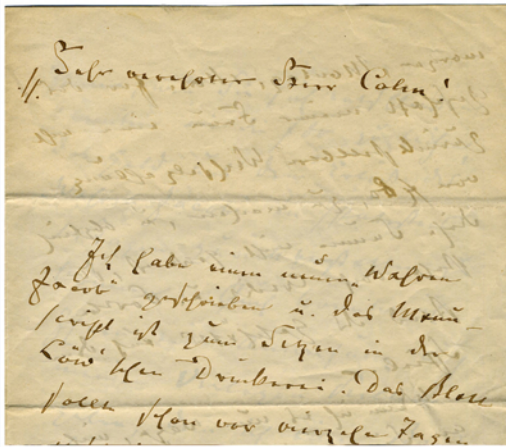 Sehr verehrter Herr Cohn!
Ich habe einen neuen „Wahren
Jacob" geschrieben u. das Manu-
script ist zum Setzen in der
Löw'schen Druckerei. Das Blatt
sollte schon vor vierzehn Tagen